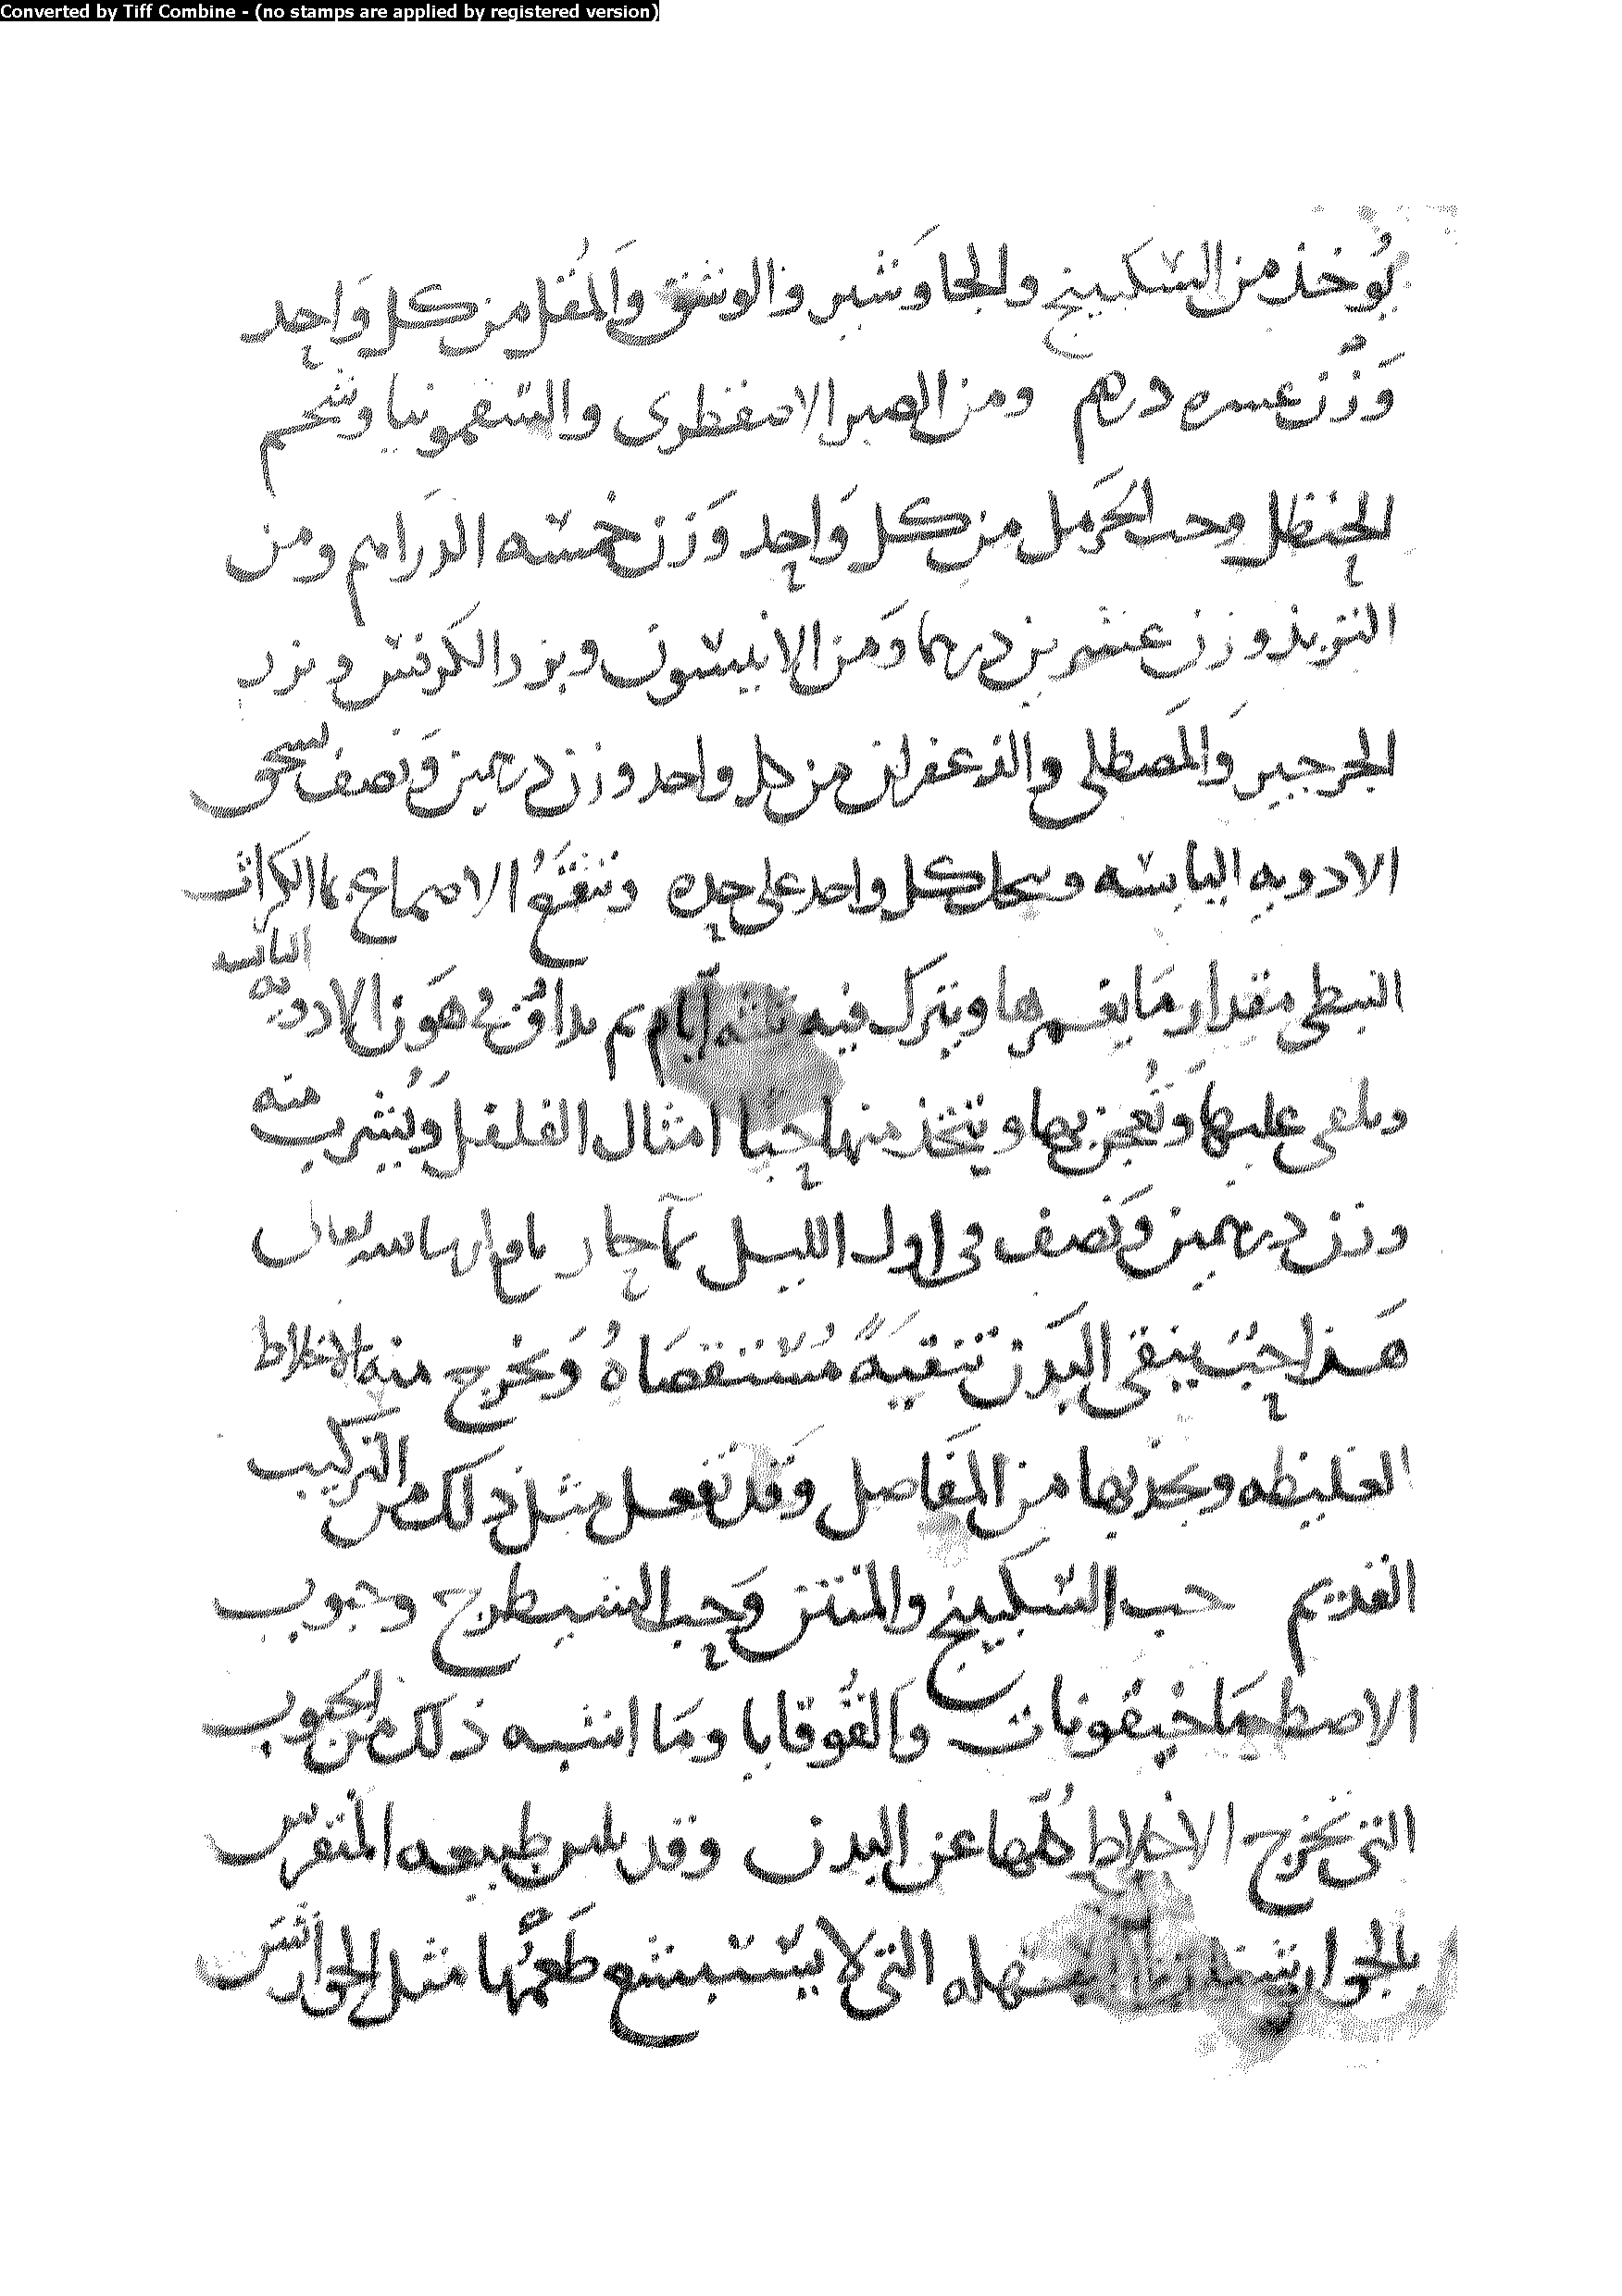 Converted by Tiff Combine - (no stamps are applied by registered version)
يُوخذ من السكبينج والجاوَشير والوشق وَالمُقل من كل وَاحِد
وَزن عسره درهم ومن الصبر الاسقطرى والسقمونيا وشحم
الحنظل وحب الحَرمل من كل وَاحِد وَزن خمسه الدرَاهم ومن
التربذ وزن عشرين درهما وَمن الانيسون وبزر الكرَفس وبزر
الجرجير وَالمَصطكى والزعفران من كل واحد وزن درهمين وَنصف يسحق
الادويه اليابسه ويحل كل واحد على حِده وتنقَعُ الاصماغ بما الكرَاث
النبطى مقدار مَا يغمرها ويترَك فيه ثلثه ايَام ثم يداق فى هَوَن الادويه اليابسه
ويلقى عليها وَتُعجن بها ويتخذ منها حِبًا امثال الفلفل وَيُشرب منه
وزن درهمين وَنصف فى اول الليل بمآ حار نافع ان شا الله تعالى
هَذا حِبُ ينقى البَدن تنقيَةً مُستقصَاهُ وَيخرج منه الاخلاط
الغليظه ويجذبها من المَفاصل وَقد تفعل مثل ذلك من التركيب
القديم حب السكبينج والمنتن وَحِب الشيطرج وحبوب
الاصطمَاخيقونات وَالقُوقايا ومَا اشبه ذلك من الحبوب
التى تخرج الاخلاط كُلها عن البدن وقد يلين طبيعه المنقرس
بالجوارشنات المسهله التى لا يستبشع طَعمُها مثل الجوارشن